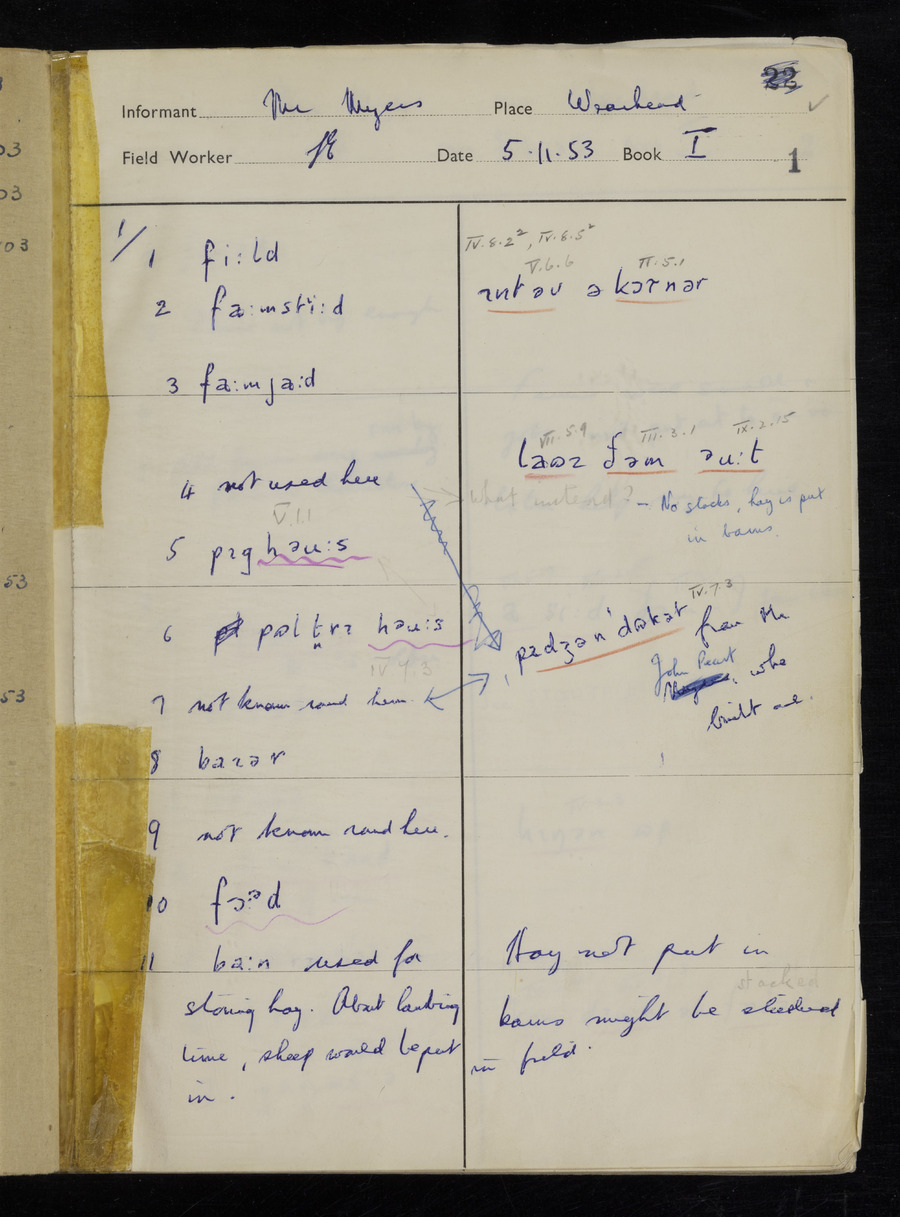 Informant Mr Myers Place Wearhead
22
Field Worker Date 5.11.53 Book I
1
1/
1 fi:ld
2 fa:msti:d
3 fa:mja:d
4 not used here
V.1.1
5 pɪghəu:s
6 həu:s
IV 9.3
7 not known round here.
8
9 not known round here.
10
11 ba:n used for
storing hay. About lambing
time, sheep would be put
in.
IV.8.2², IV.8.5²
V.6.6 II.5.1
əv ə
VII.5.9 III.3.1 IX.2.15
ðəm əu:t
what instead? – No stacks, hay is put
in barns.
IV.7.3
from Mr
John Peart
, who
built one.
Hay not put in
stacked
barns might be
in field.
03
03
03
53
53